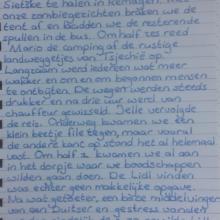 Sietske te halen in Remagen. Met
onze zombiegezichten braken we de
tent af en laadden we de resterende
spullen in de bus. Om half zes reed
Mario de camping af de rustige
landweggetjes van Tsjechië op.
Langzaam werd iedereen wat meer
wakker en om en om begonnen mensen
te ontbijten. De wegen werden steeds
drukker en na drie uur werd van
chauffeur gewisseld. Jelle vervolgde
de reis. Onderweg kwamen we een
klein beetje file tegen, maar vooral
de andere kant op stond het al helemaal
vast. Om half 2 kwamen we al aan
in het dorpje waar we boodschappen
wilden gaan doen. De Lidl vinden
was echter geen makkelijke opgave.
Na wat getoeter, een barse middelvinger
van een Duitser en gestress vonden